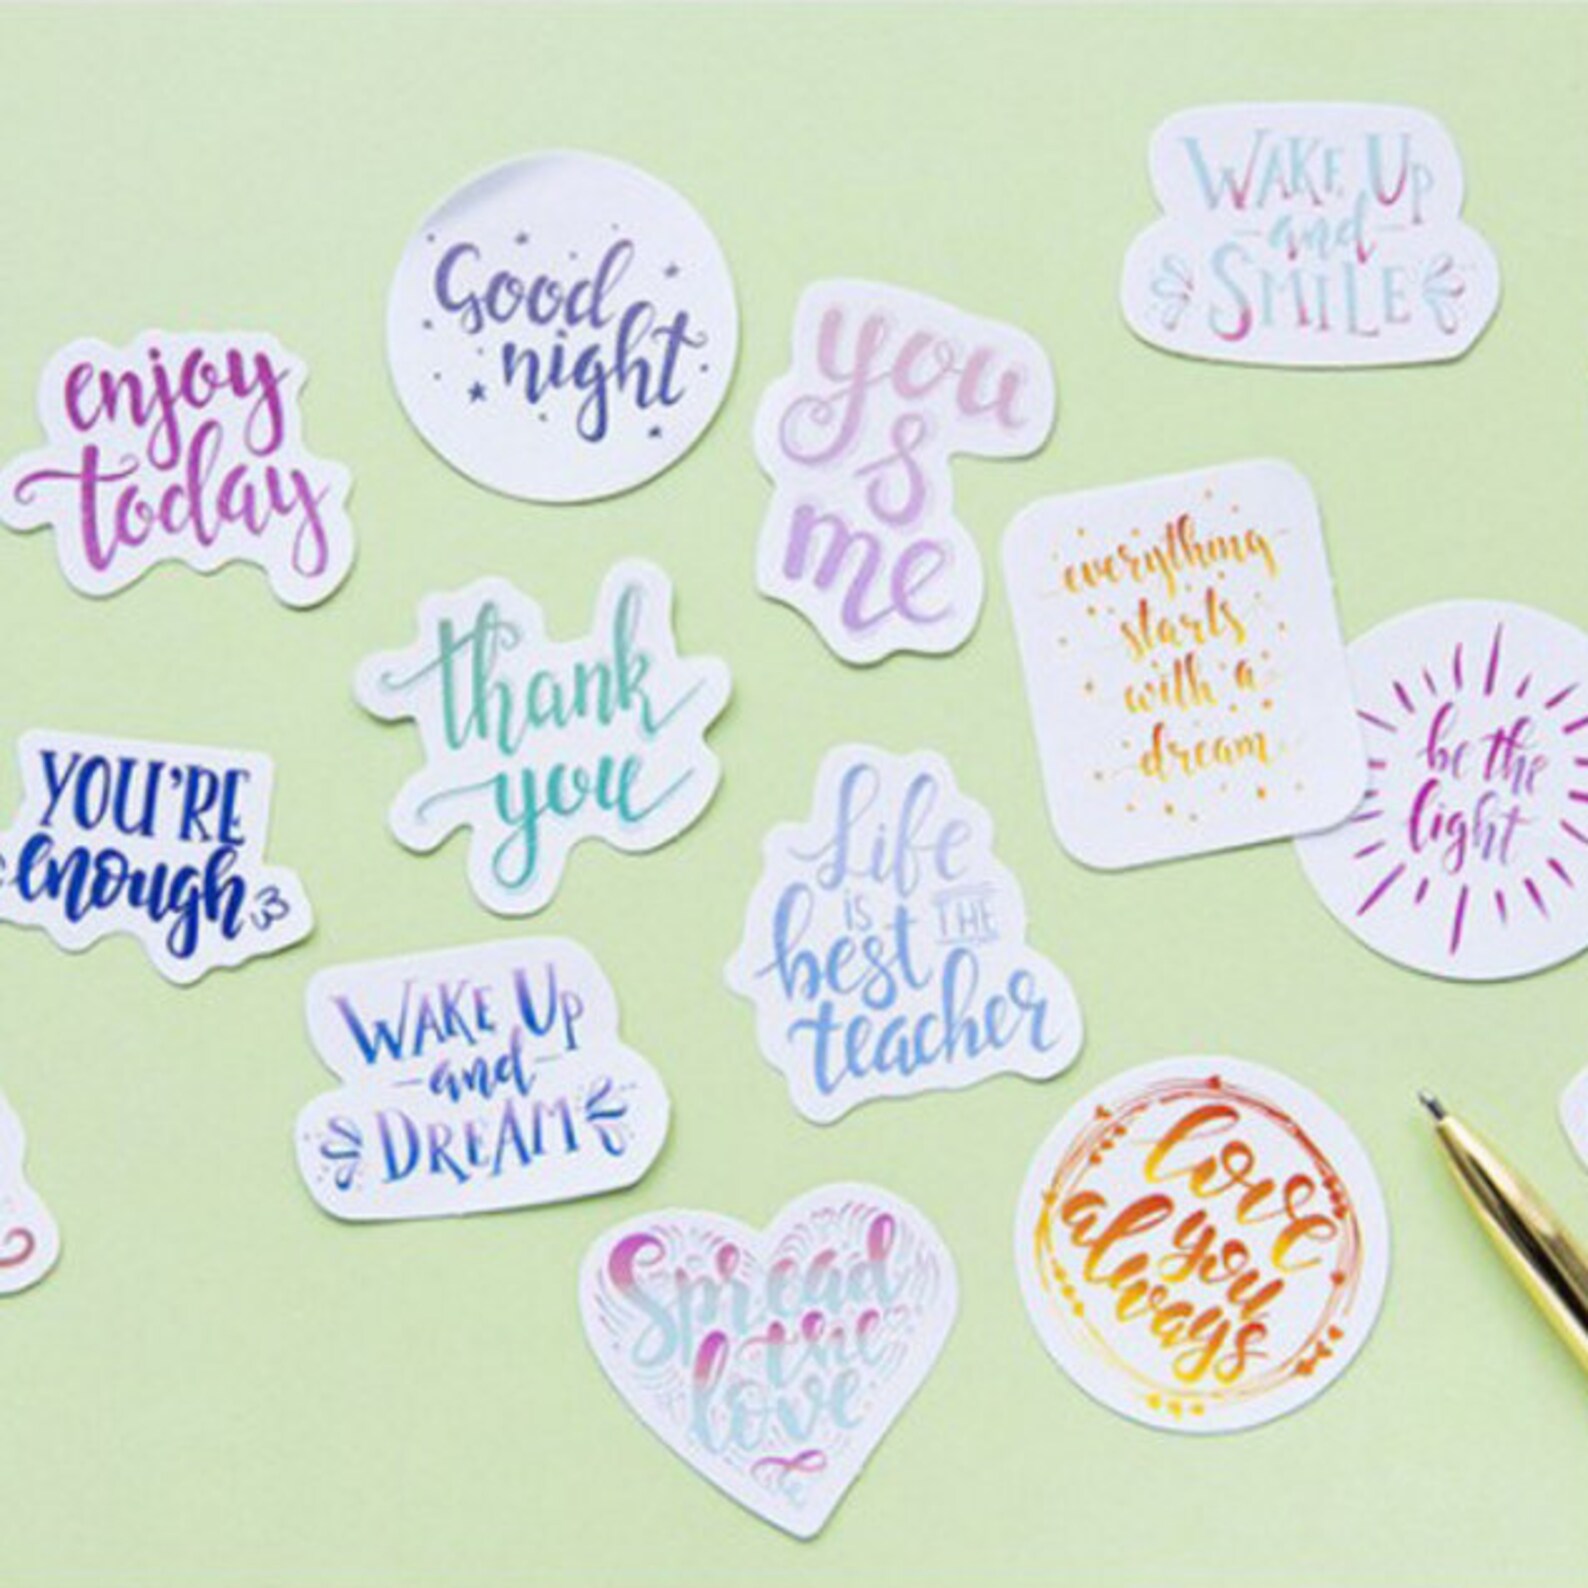 Good
night
WAKE UP
and
SMILE
enjoy
today
you
&
me
everything
starts
with a
dream
thank
you
be the
light
YOU'RE
enough
Life
is
best THE
teacher
WAKE UP
and
DREAM
love
you
always
Spread
the
love